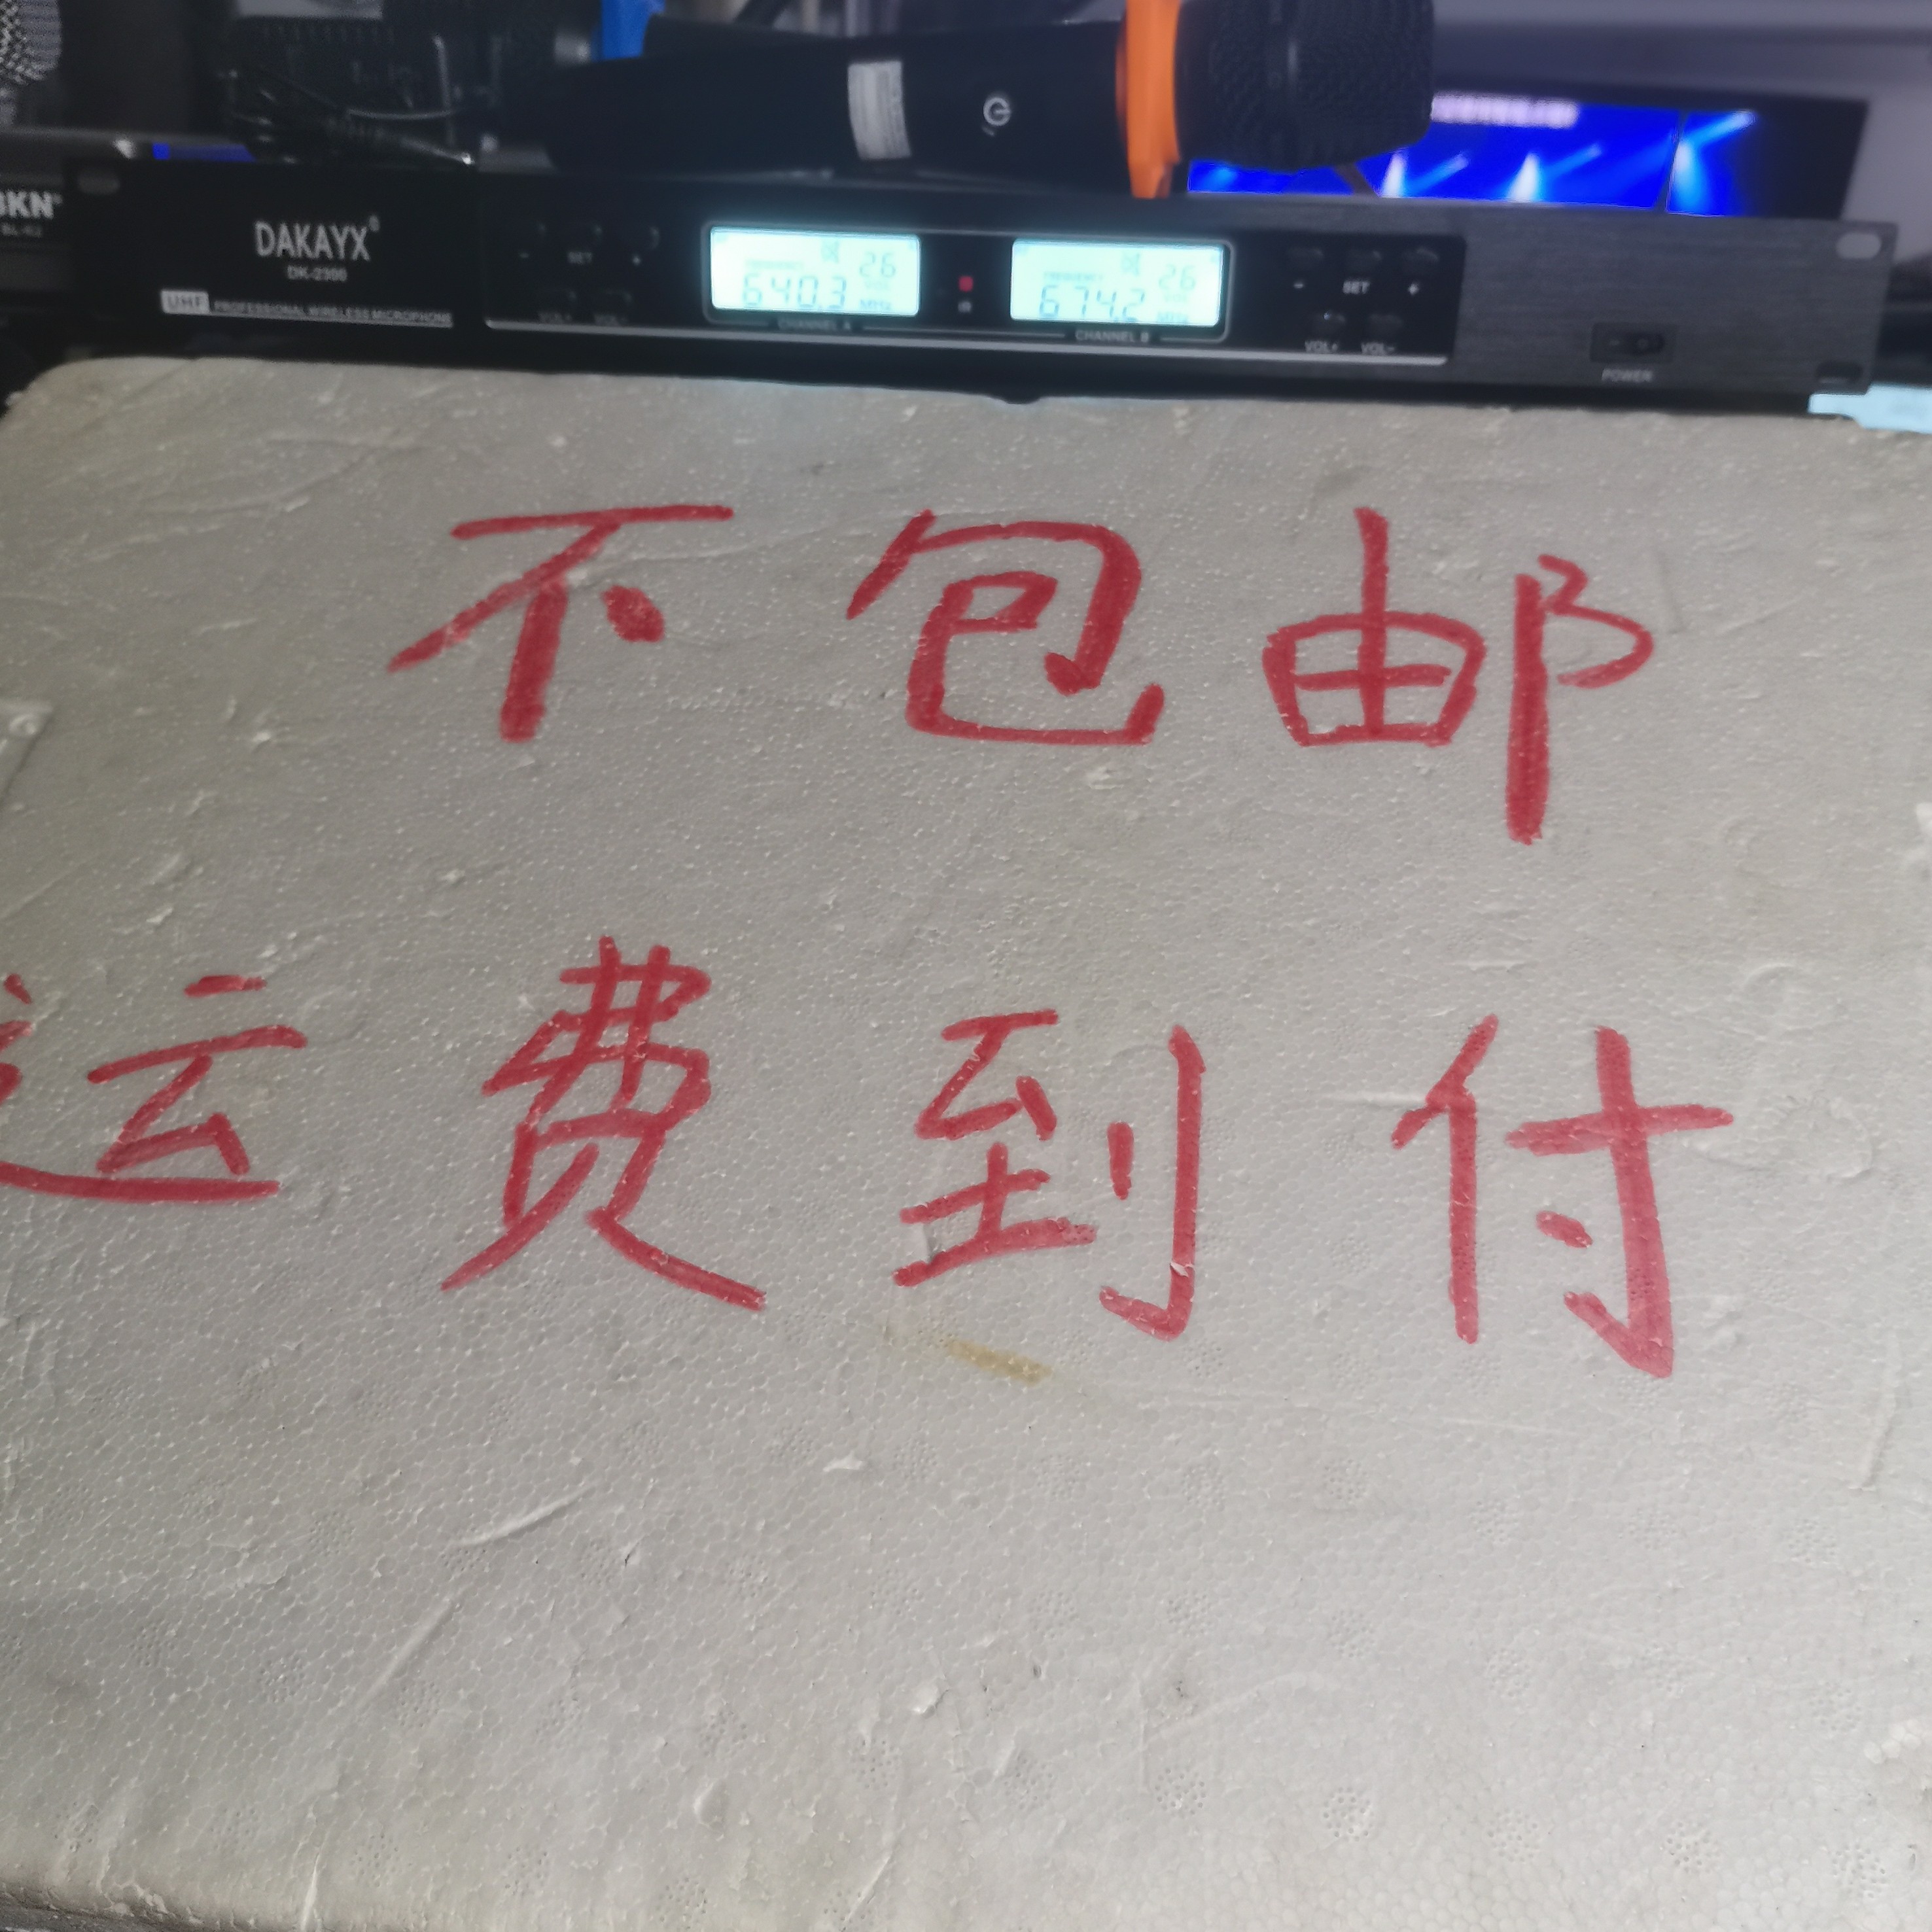 BKN
DAKAYX
DK-2300
UHF PROFESSIONAL WIRELESS MICROPHONE
- SET +
VOL+ VOL-
26
640.3 MHz
CHANNEL A
26
674.2 MHz
CHANNEL B
- SET +
VOL+ VOL-
POWER
不包邮
运费到付